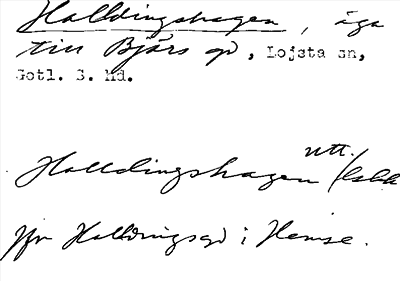 Halldingshagen, äga
till Bjärs gd, Lojsta sn,
Gotl. S. Hd.
utt.
Halldingshagen
jfr Halldingsgd i Hemse.